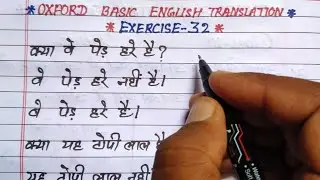 *OXFORD BASIC ENGLISH TRANSLATION*
*EXERCISE-32*
क्या वे पेड़ हरे है?
वे पेड़ हरे नहीं है।
वे पेड़ हरे है।
क्या यह टोपी लाल है
यह टोपी लाल नहीं